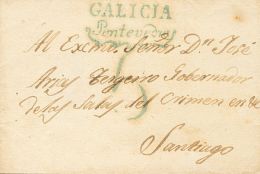 GALICIA
Pontevedra
Al Excmo Señor Dn José
Arias Tegeiro Gobernador
de las Salas del Crimen en
5
Santiago